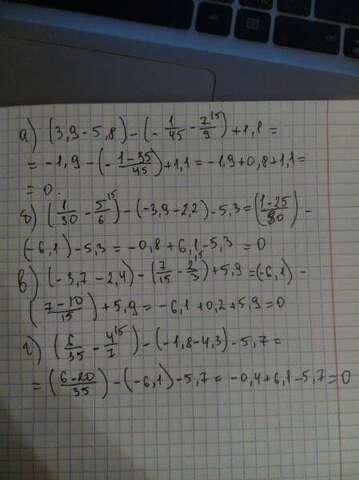 а) (3,9-5,8)-(-1/45-7/9^15)+1,1=
=-1,9-(-1-35/45)+1,1=-1,9+0,8+1,1=
=0.
б) (1/30-5/6^15)-(-3,9-2,2)-5,3=(1-25/30)-
(-6,1)-5,3=-0,8+6,1-5,3=0
в) (-3,7-2,4)-(7/15-2/3^15)+5,9=(-6,1)-
(7-10/15)+5,9=-6,1+0,2+5,9=0
г) (6/35-4/7^15)-(-1,8-4,3)-5,7=
=(6-20/35)-(-6,1)-5,7=-0,4+6,1-5,7=0